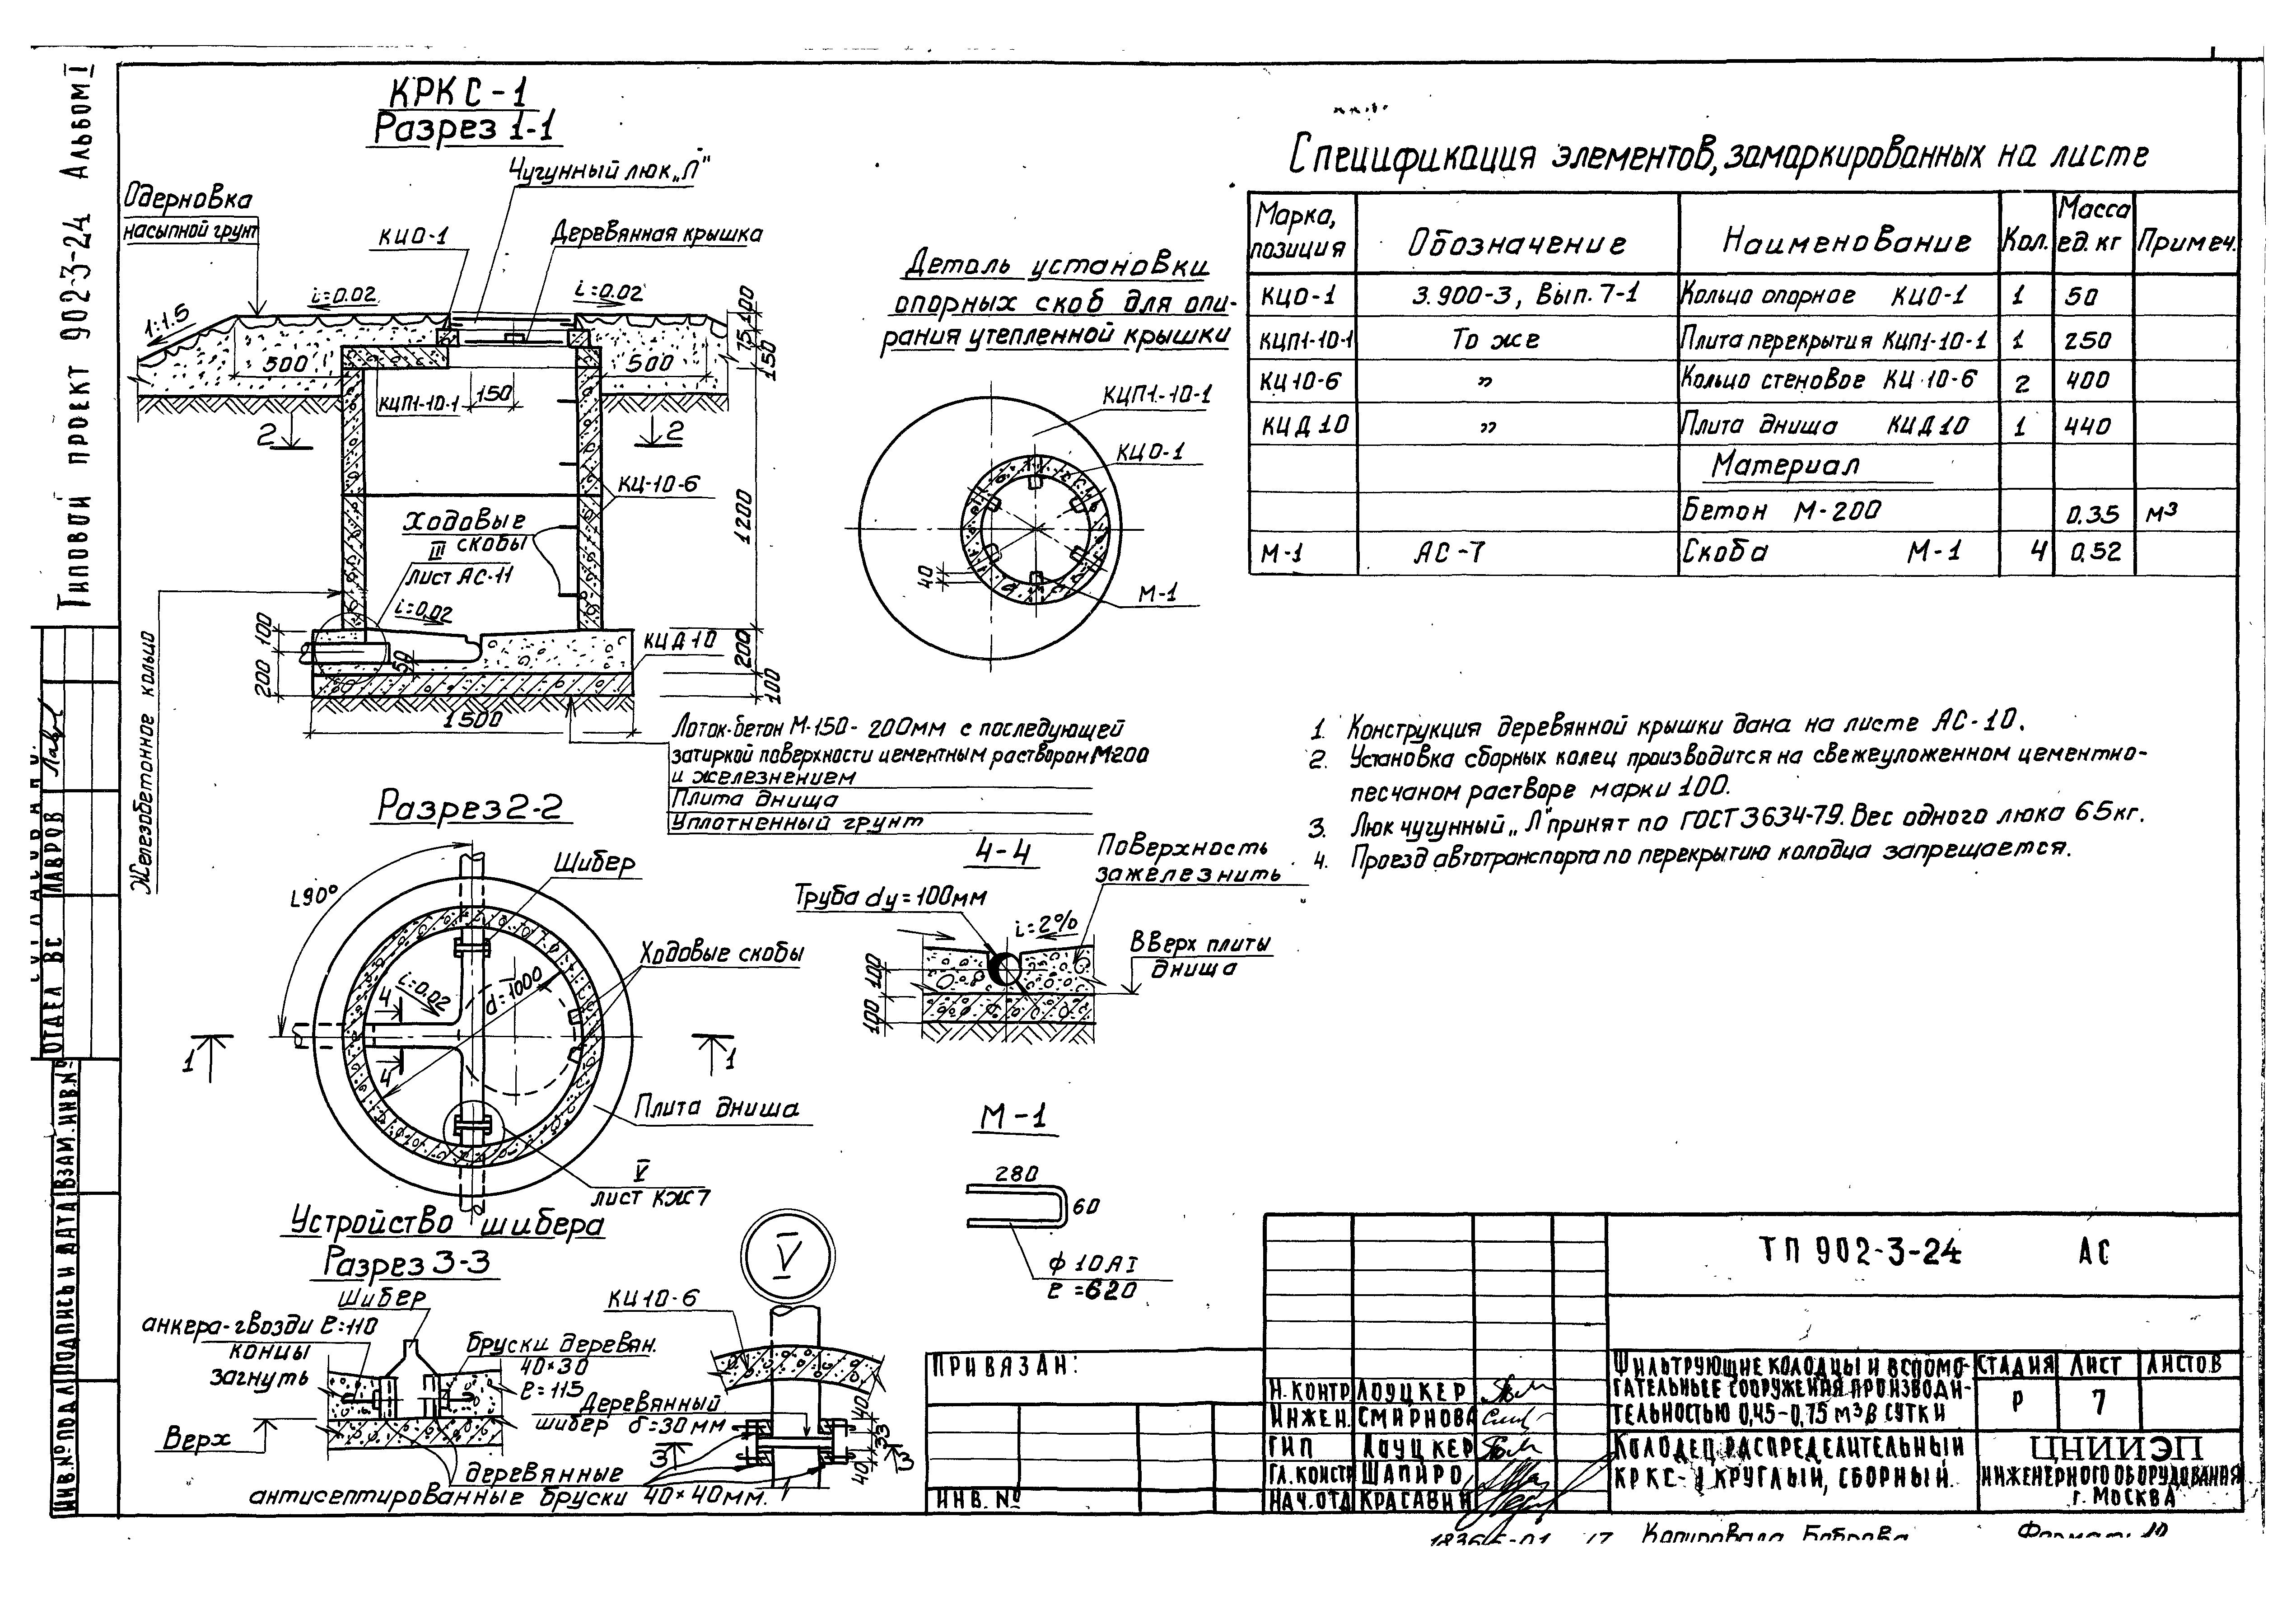 Типовой проект 902-3-24 Альбом I
КРКС-1
Разрез 1-1
Чугунный люк „Л"
Одерновка
насыпной грунт
КЦО-1
Деревянная крышка
i=0.02
i=0.02
1:1.5
500
500
100
75
150
КЦП1-10-1
150
2
2
КЦ-10-6
1200
Ходовые
скобы
III
лист АС-11
i=0.02
Железобетонное кольцо
100
200
50
КЦД 10
200
100
1500
Лоток-бетон М-150- 200мм с последующей
затиркой поверхности цементным раствором М200
и железнением
Плита днища
Уплотненный грунт
Деталь установки
опорных скоб для опи-
рания утепленной крышки
КЦП1-10-1
КЦО-1
40
М-1
Спецификация элементов, замаркированных на листе
Марка, позиция Обозначение Наименование Кол. Масса ед. кг Примеч.
КЦО-1 3.900-3, Вып. 7-1 Кольцо опорное КЦО-1 1 50
КЦП1-10-1 То же Плита перекрытия КЦП1-10-1 1 250
КЦ10-6 „ Кольцо стеновое КЦ 10-6 2 400
КЦД 10 „ Плита днища КЦД 10 1 440
Материал
Бетон М-200 0.35 м³
М-1 АС-7 Скоба М-1 4 0.52
1. Конструкция деревянной крышки дана на листе АС-10.
2. Установка сборных колец производится на свежеуложенном цементно-
песчаном растворе марки 100.
3. Люк чугунный „Л" принят по ГОСТ 3634-79. Вес одного люка 65кг.
4. Проезд автотранспорта по перекрытию колодца запрещается.
Разрез 2-2
Шибер
L90°
Ходовые скобы
i=0.02
d=1000
4
4
1
1
Плита днища
V
лист КЖ7
4-4
Поверхность
зажелезнить
Труба dу=100мм
i=2%
ВВерх плиты
днища
100
100
М-1
280
60
ф 10АI
ℓ=620
Устройство шибера
Разрез 3-3
Шибер
анкера-гвозди ℓ=110
концы
загнуть
бруски деревян.
40×30
ℓ=115
Верх
деревянные
антисептированные бруски 40×40мм.
V
КЦ10-6
Деревянный
шибер δ=30мм
40
33
40
3
3
ОТДЕЛ ВС ЛАВРОВ
ИНВ.№ПОДЛ ПОДПИСЬ И ДАТА ВЗАМ.ИНВ.№
ПРИВЯЗАН:
ИНВ.№
Н.КОНТР ЛОУЦКЕР
ИНЖЕН. СМИРНОВА
ГИП ЛОУЦКЕР
ГЛ.КОНСТР ШАПИРО
НАЧ.ОТД КРАСАВИН
ТП 902-3-24 АС
ФИЛЬТРУЮЩИЕ КОЛОДЦЫ И ВСПОМО-
ГАТЕЛЬНЫЕ СООРУЖЕНИЯ ПРОИЗВОДИ-
ТЕЛЬНОСТЬЮ 0,45-0,75 м³ В СУТКИ
СТАДИЯ ЛИСТ ЛИСТОВ
Р 7
КОЛОДЕЦ РАСПРЕДЕЛИТЕЛЬНЫЙ
КРКС-1 КРУГЛЫЙ, СБОРНЫЙ.
ЦНИИЭП
ИНЖЕНЕРНОГО ОБОРУДОВАНИЯ
г. МОСКВА
18366-01 17 Копировала Боброва Формат: